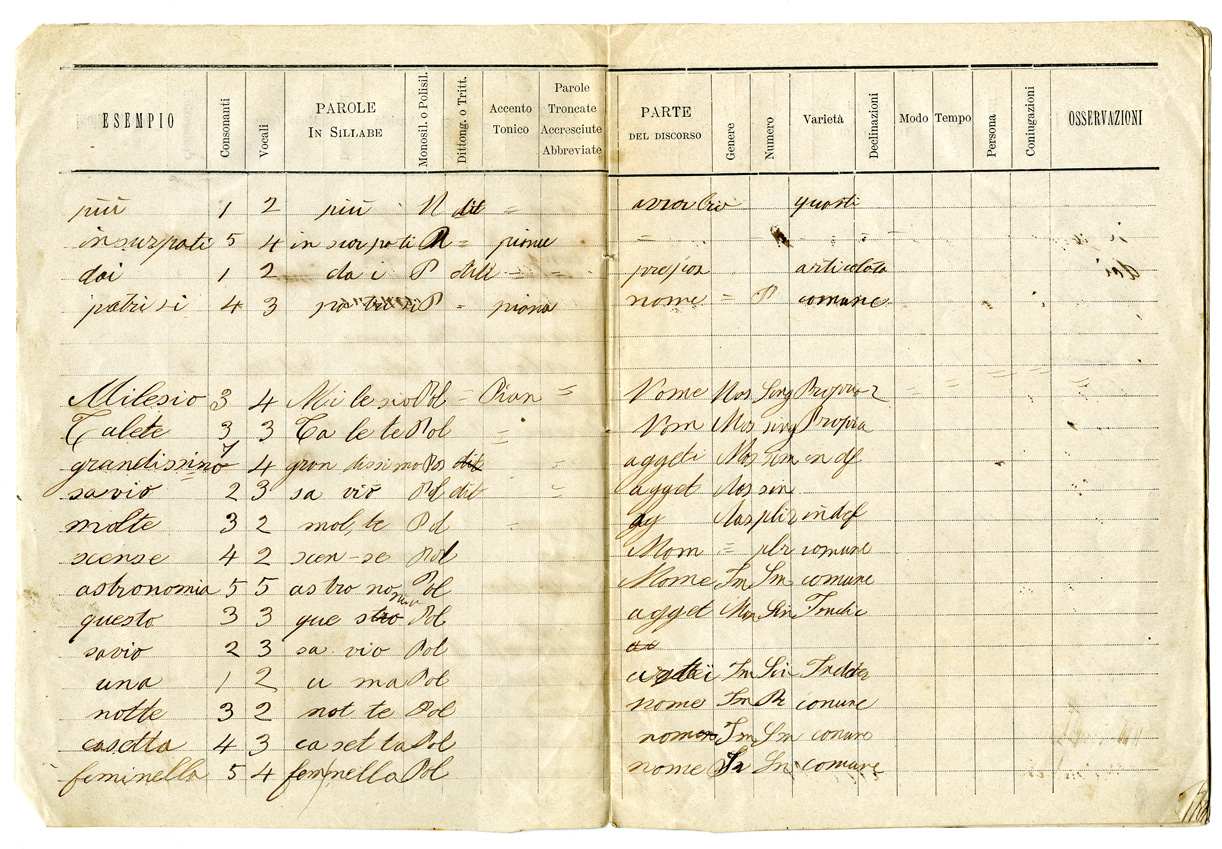 ESEMPIO Consonanti Vocali PAROLE IN SILLABE Monosil. o Polisil. Dittong. o Tritt. Accento Tonico Parole Troncate Accresciute Abbreviate PARTE DEL DISCORSO Genere Numero Varietà Declinazioni Modo Tempo Persona Coniugazioni OSSERVAZIONI
più 1 2 più dit =
insurpati 5 4 in sur pati = =
dai 1 2 da i P articolata
patrisi 4 3 P = piana nome = P comune
Milesio 3 4 Mi le sio Pol = Pian = Nome Mas Sing Propria 2
Talete 3 3 Ta le te Pol = Mas sing Propria
grandissimo 7 4 gran dissimo dit = aggeti Mas
savio 2 3 sa vio Pol dit = agget Mas sin
molte 3 2 mol, te Pol indef
scense 4 2 scen-se Pol Nom = plr comune
astronomia 5 5 as tro no mia Pol Nome Fm Sin comune
questo 3 3 que sto Pol agget Mas Sin
savio 2 3 sa vio Pol
una 1 2 u ma Pol Fm Sin
notte 3 2 not te Pol nome Fm conune
casetta 4 3 ca set ta Pol nome Fm Sin conune
feminella 5 4 Pol nome Sin comune